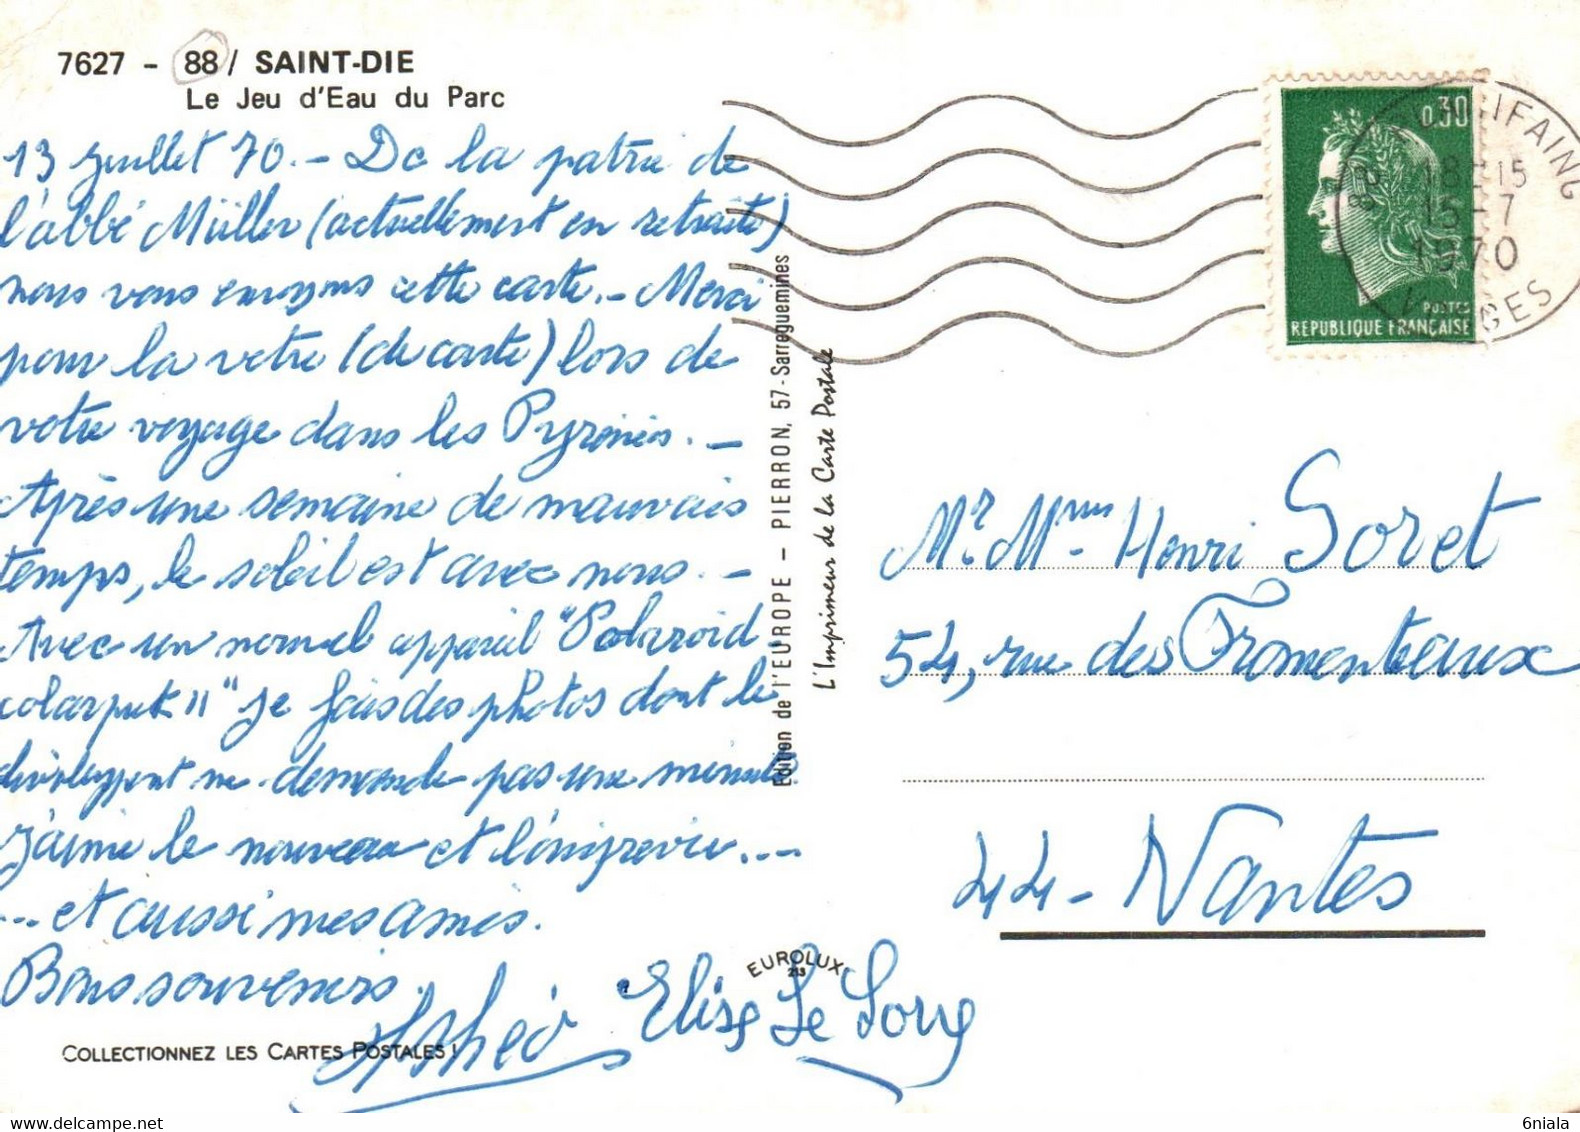 7627 - 88 / SAINT-DIE
Le Jeu d'Eau du Parc
13 juillet 70. - De la patrie de
l'abbé Müller (actuellement en retraite)
nous vous envoyons cette carte. - Merci
pour la votre (de carte) lors de
votre voyage dans les Pyrénées. -
Après une semaine de mauvais
temps, le soleil est avec nous. -
Avec un nouvel appareil "Polaroid
colorpak II" je fais des photos dont le
développent ne demande pas une minute
J'aime le nouveau et l'imprévu....
... et aussi mes amis.
Bons souvenirs.
Elise Le Lorre
COLLECTIONNEZ LES CARTES POSTALES !
Edition de l'EUROPE - PIERRON, 57 - Sarreguemines
L'Imprimeur de la Carte Postale
EUROLUX
213
0,30
POSTES
REPUBLIQUE FRANÇAISE
18H15
15-7
1970
VOSGES
Mr. Mme Henri Soret
54, rue des Fromenteaux
44 - Nantes
6niala